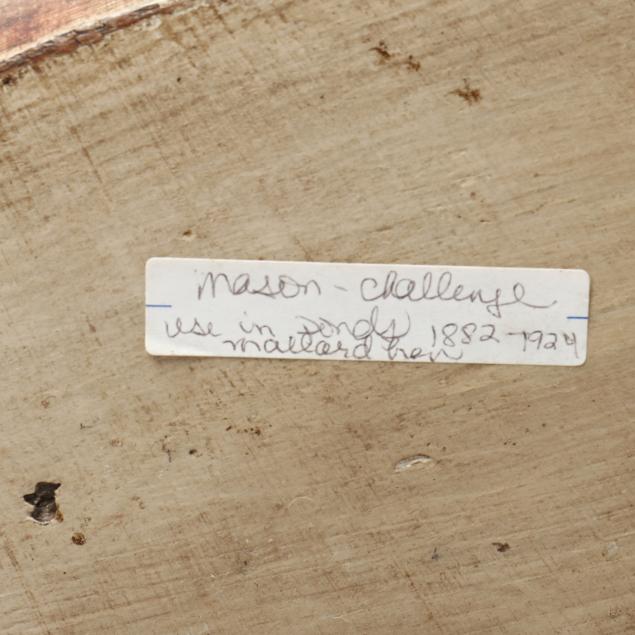 mason - challenge
use in ponds 1882-1924
mallard hen